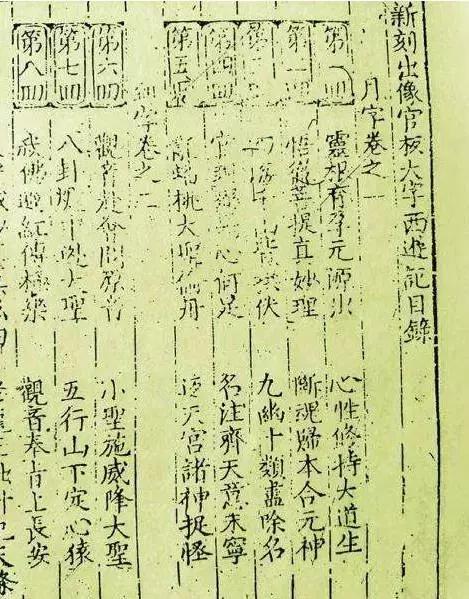 新刻出像官板大字西遊記目錄
月字卷之一
第一回 靈根育孕元源出 心性修持大道生
第二回 悟徹菩提真妙理 斷魂歸本合元神
第三回 四海千山皆拱伏 九幽十類盡除名
第四回 官 心何足 名注齊天意未寧
第五回 蟠桃大聖偷丹 天宮諸神捉怪
字卷之二
第六回 觀音赴會問原 小聖施威降大聖
第七回 八卦爐中逃大聖 五行山下定心猿
第八回 我佛造經傳極樂 觀音奉旨上長安